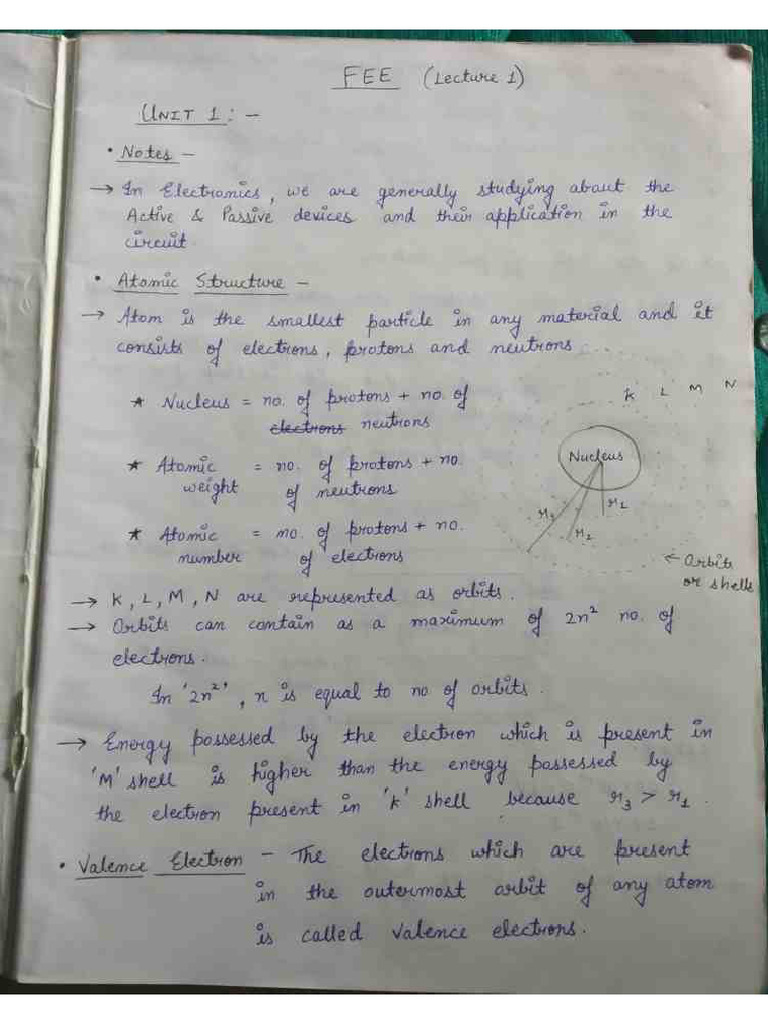 FEE (Lecture 1)
UNIT 1 : -
• Notes -
→ In Electronics, we are generally studying about the
Active & Passive devices and their application in the
circuit.
• Atomic Structure -
→ Atom is the smallest particle in any material and it
consists of electrons, protons and neutrons ...
* Nucleus = no. of protons + no. of
electrons neutrons
* Atomic = no. of protons + no.
weight of neutrons
* Atomic = no. of protons + no.
number of electrons
K L M N
Nucleus
← Orbits
or shells
→ K, L, M, N are represented as orbits.
→ Orbits can contain as a maximum of 2n² no. of
electrons.
In '2n²', n is equal to no of orbits.
→ Energy possessed by the electron which is present in
'M' shell is higher than the energy possessed by
the electron present in 'K' shell because r₃ > r₁.
• Valence Electron - The electrons which are present
in the outermost orbit of any atom
is called valence electrons.